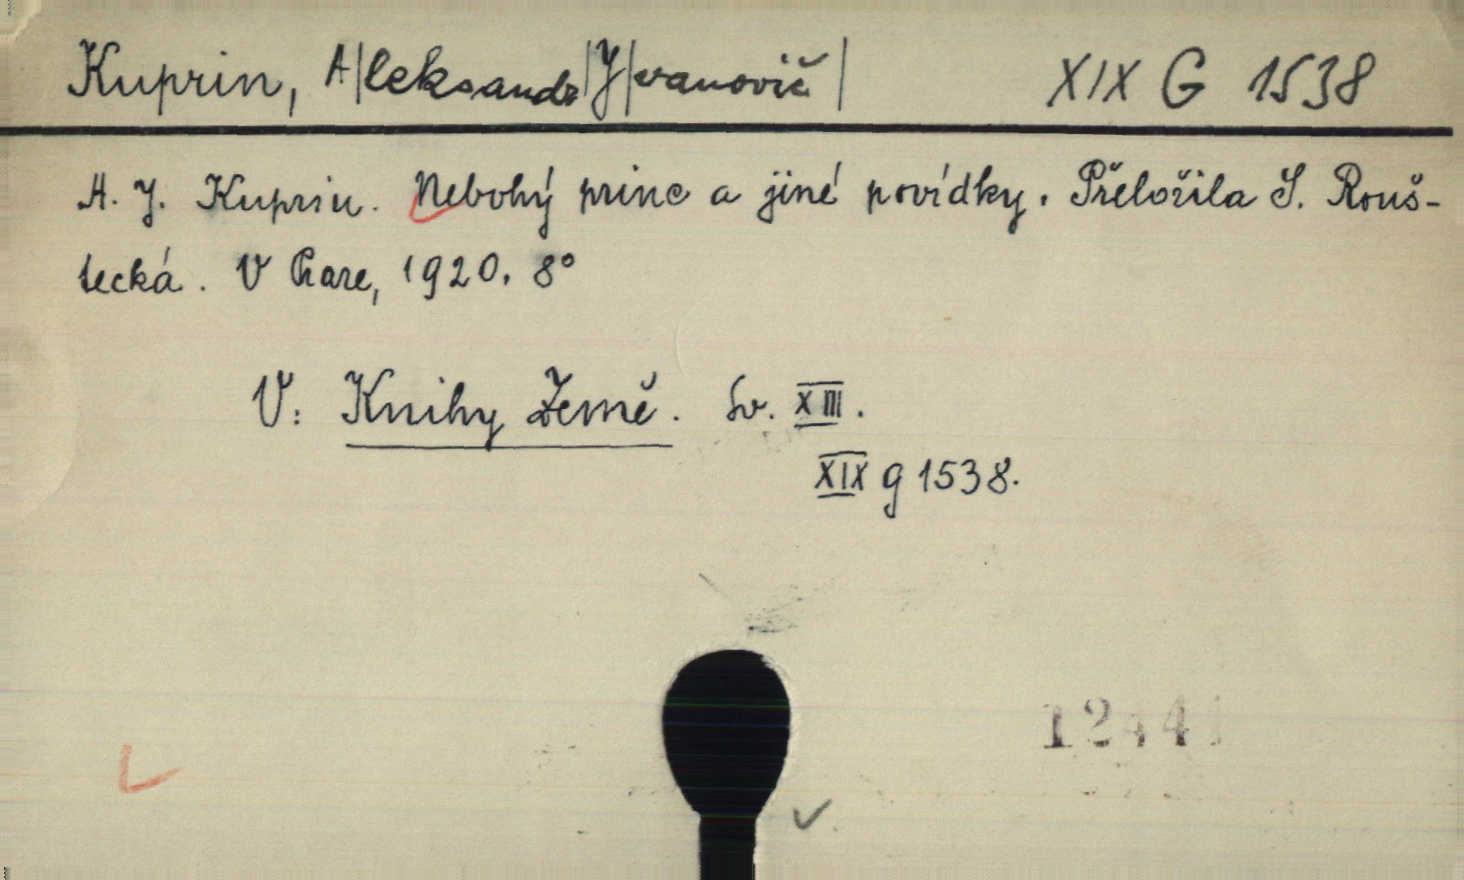 Kuprin, A|leksandr|J|vanovič| XIX G 1538
A. J. Kuprin. Nebohý princ a jiné povídky. Přeložila Š. Rouš-
tecká. V Praze, 1920. 8°
V: Knihy Země. Sv. XIII.
XIX g 1538.
1244